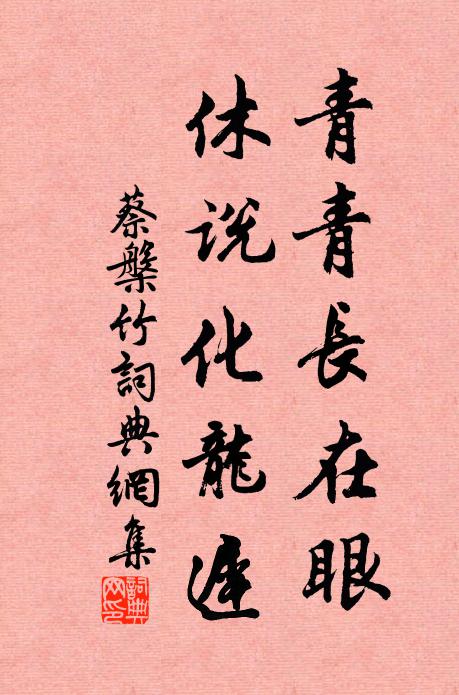 青青長在眼
休说化龍遲
蔡槃竹詞典網集
詞典网印